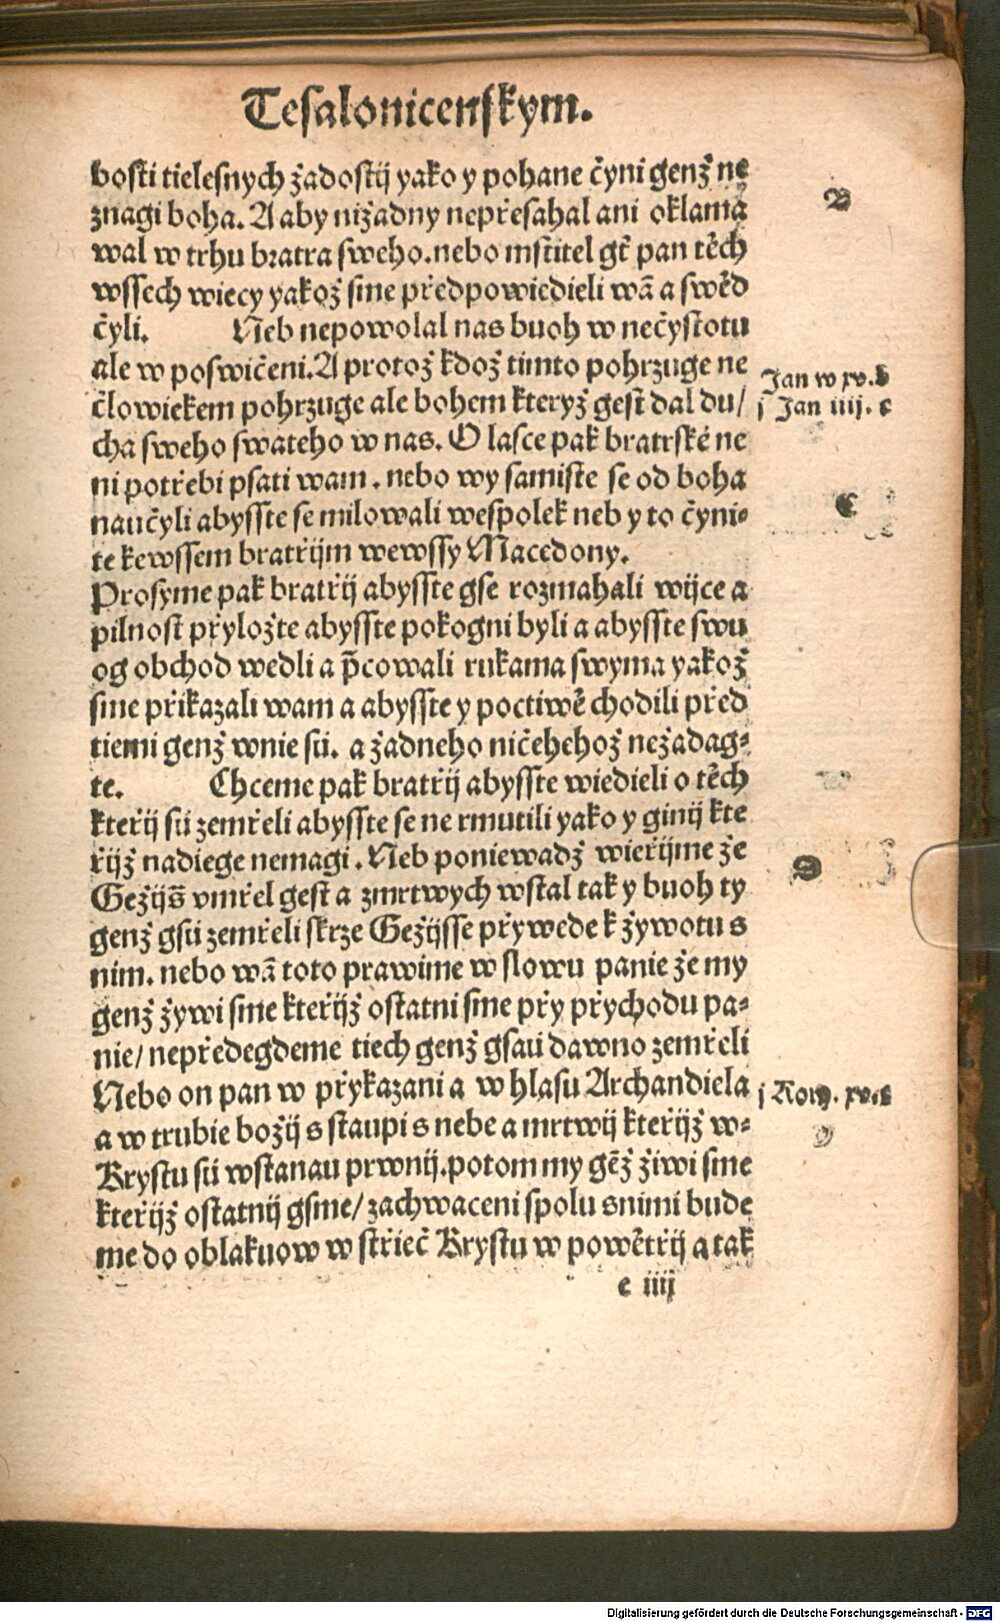 Tesalonicenskym.
bosti tielesnych žadostij yako y pohane čyni genž ne
znagi boha. A aby nižadny nepřesahal ani oklama
wal w trhu bratra sweho. nebo mstitel gt̃ pan těch
wssech wiecy yakož sme předpowiedieli wã a swěd
čyli. Neb nepowolal nas buoh w nečystotu
ale w poswičeni. A protož kdož timto pohrzuge ne
člowiekem pohrzuge ale bohem kteryž gest dal du/
cha sweho swateho w nas. O lasce pak bratrské ne
ni potřebi psati wam. nebo wy samiste se od boha
naučyli abysste se milowali wespolek neb y to čyni⸗
te kewssem bratřijm wewssy Macedony.
Prosyme pak bratřij abysste gse rozmahali wijce a
pilnost přyložte abysste pokogni byli a abysste swu
og obchod wedli a p̃cowali rukama swyma yakož
sme přikazali wam a abysste y poctiwě chodili před
tiemi genž wnie sú. a žadneho ničehehož nežadag⸗
te. Chceme pak bratřij abysste wiedieli o těch
kteřij sú zemřeli abysste se ne rmutili yako y ginij kte
řijž nadiege nemagi. Neb poniewadž wieřijme že
Gežijš vmřel gest a zmrtwych wstal tak y buoh ty
genž gsú zemřeli skrze Gežijsse přywede k žywotu s
nim. nebo wã toto prawime w slowu panie že my
genž žywi sme kteřijž ostatni sme přy přychodu pa⸗
nie/ nepředegdeme tiech genž gsaú dawno zemřeli
Nebo on pan w přykazani a w hlasu Archandiela
a w trubie božij s staupi s nebe a mrtwij kteřijž w⸗
Krystu sú wstanau prwnij. potom my gẽž žiwi sme
kteřijž ostatnij gsme/ zachwaceni spolu snimi bude
me do oblakuow w střieč Krystu w powětřij a tak
e iiij
B
Jan w xv. b
j Jan iiij. c
C
D
j Kor. xv.
Digitalisierung gefördert durch die Deutsche Forschungsgemeinschaft - DFG